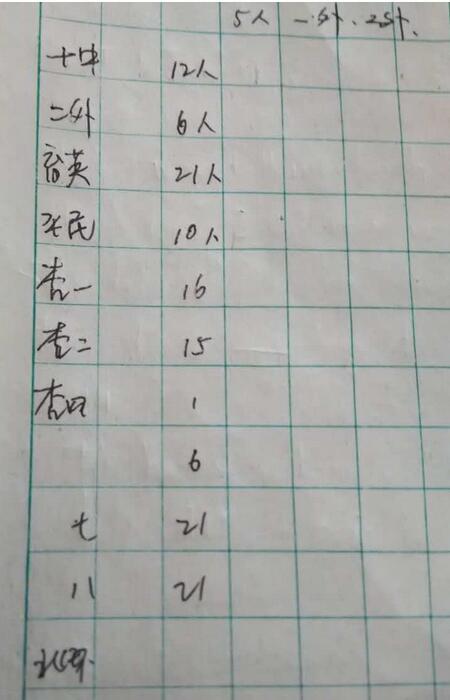 5人 一外、二外、
十中 12人
二外 6人
育英 21人
10人
杏一 16
杏二 15
杏四 1
6
七 21
八 21